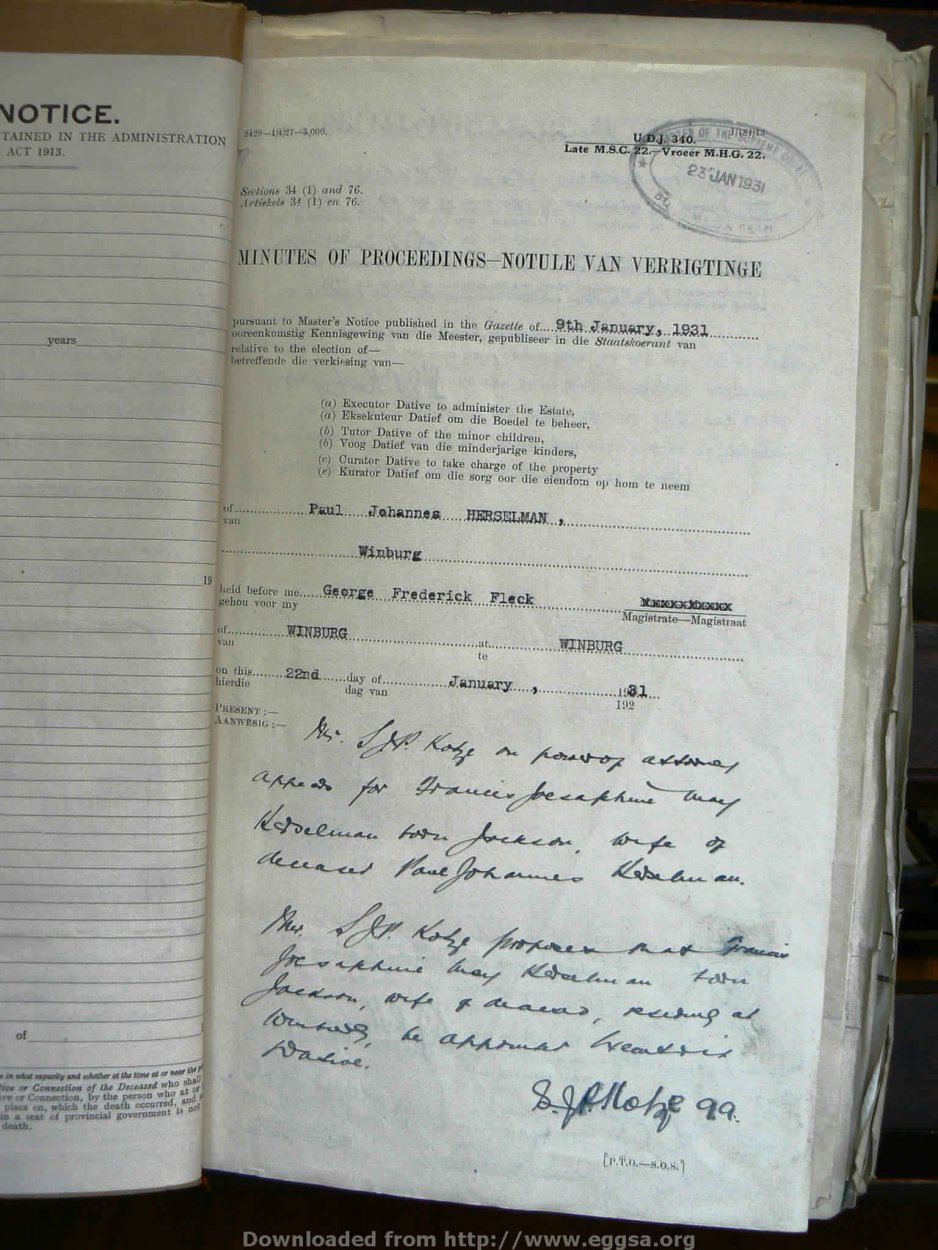 NOTICE.
TAINED IN THE ADMINISTRATION
ACT 1913.
years
19
of
e in what capacity and whether at the time at or near the p
tion or Connection of the Deceased who shall
ive or Connection, by the person who at or
place on, which the death occurred, and
in a seat of provincial government is not
death.
2429—1/4/27—5,000.
U.D.J. 340.
Late M.S.C. 22.—Vroeer M.H.G. 22.
OF THE SUPREME
23 JAN 1931
Sections 34 (1) and 76.
Artiekels 34 (1) en 76.
MINUTES OF PROCEEDINGS—NOTULE VAN VERRIGTINGE
pursuant to Master's Notice published in the Gazette of 9th January, 1931
ooreenkomstig Kennisgewing van die Meester, gepubliseer in die Staatskoerant van
relative to the election of—
betreffende die verkiesing van—
(a) Executor Dative to administer the Estate,
(a) Eksekuteur Datief om die Boedel te beheer,
(b) Tutor Dative of the minor children,
(b) Voog Datief van die minderjarige kinders,
(c) Curator Dative to take charge of the property
(c) Kurator Datief om die sorg oor die eiendom op hom te neem
of Paul Johannes HERSELMAN,
van
Winburg
held before me George Frederick Fleck
gehou voor my
Magistrate—Magistraat
of WINBURG at WINBURG
van te
on this 22nd day of January, 1931
hierdie dag van 192
PRESENT :—
AANWESIG :—
Mr. S J P. Kotze on power of attorney
appears for Francis Joesaphine May
Herselman born Jackson, wife of
deceased Paul Johannes Herselman.
Mr. S J P. Kotze proposes that Francis
Joesaphine May Herselman born
Jackson, wife of deceased, residing at
Winburg, be appointed Executrix
Dative.
S. J. P. Kotze q.q.
[P.T.O.—S.O.S.]
Downloaded from http://www.eggsa.org